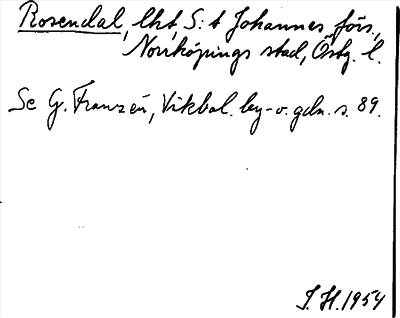 Rosendal, lht, S:t Johannes förs.,
Norrköpings stad, Östg. l.
Se G. Franzén, Vikbol. by- o. gdn. s. 89.
J. H. 1954